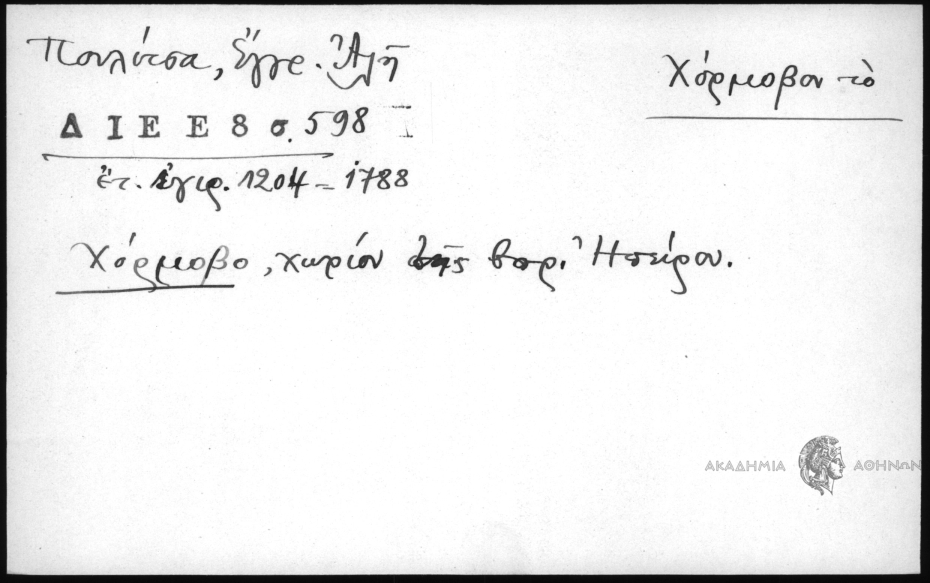 Πουλίτσα, Ἔγγρ. Ἀλῆ
Χόρμοβον τὸ
ΔΙΕΕ 8 σ. 598
ἔτ. ἐγιρ. 1204 = 1788
Χόρμοβο, χωρίον τῆς βορ. Ἠπείρου.
ΑΚΑΔΗΜΙΑ ΑΘΗΝΩΝ